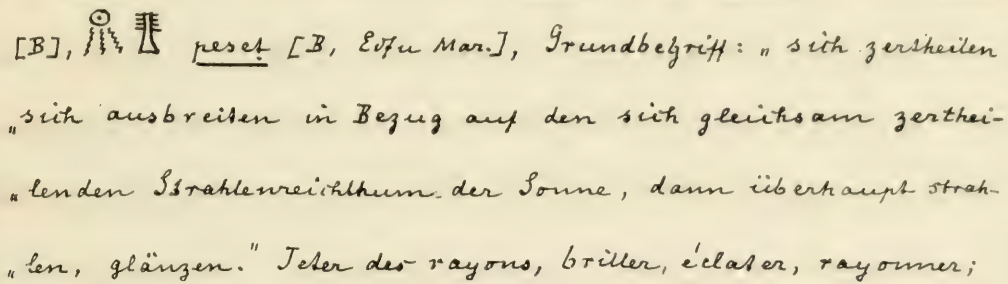 [B], 𓇶 𓊽 peset [B, Edfu Mar.], Grundbegriff: „sich zertheilen
„sich ausbreiten in Bezug auf den sich gleichsam zerthei-
„lenden Strahlenreichthum der Sonne, dann überhaupt strah-
„len, glänzen." Jeter des rayons, briller, éclater, rayonner;